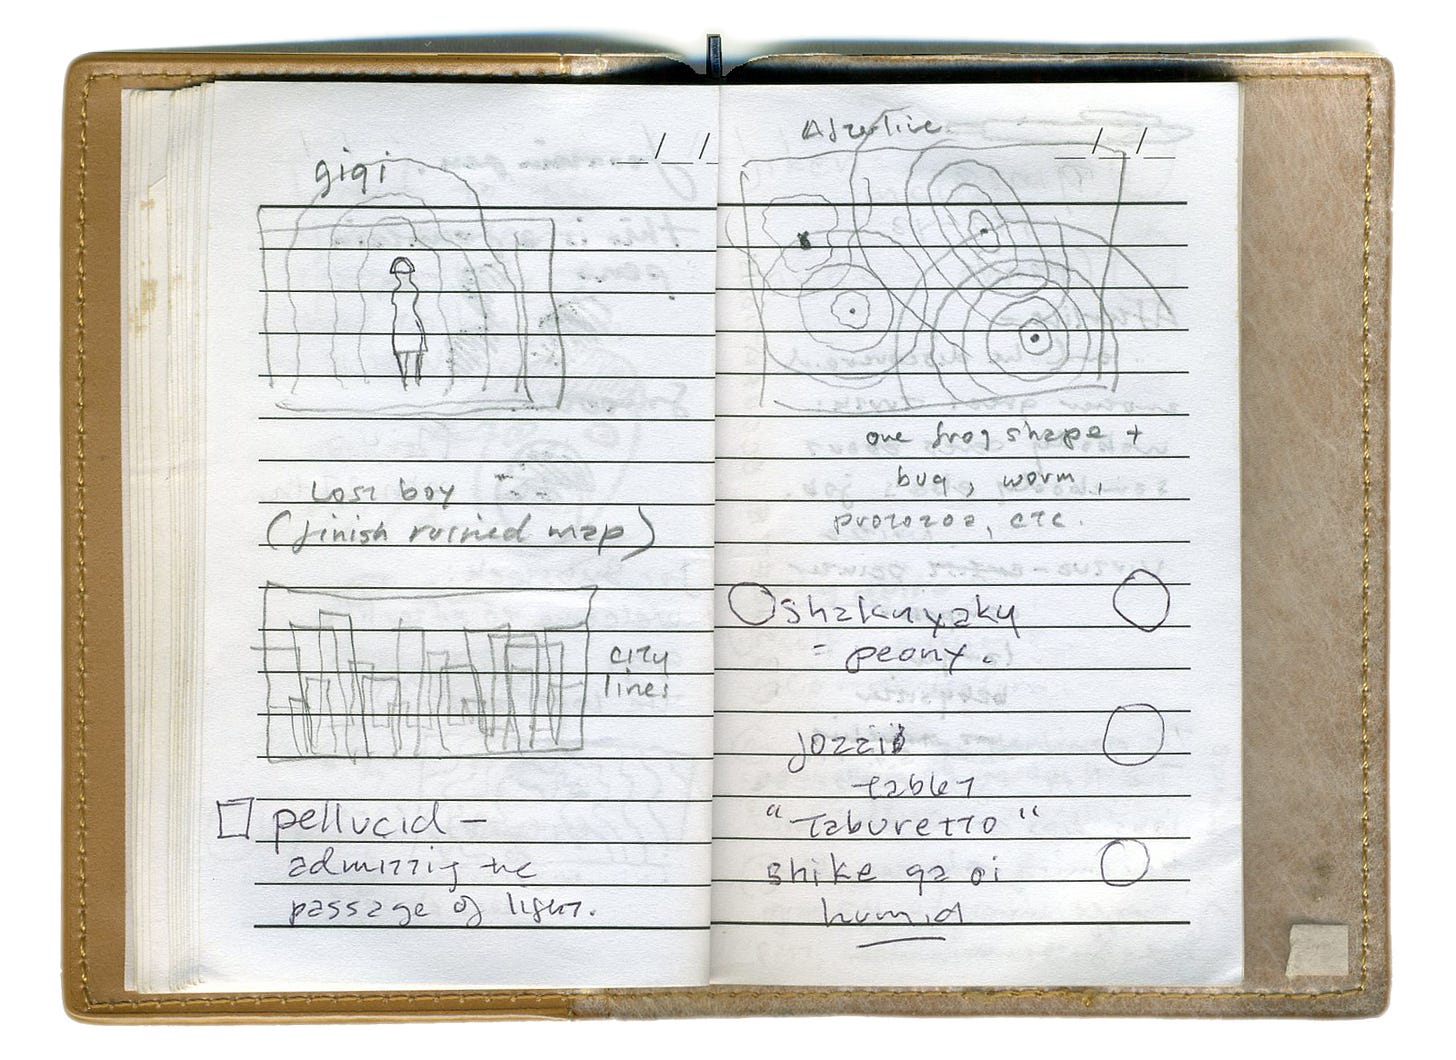 gigi
Lost boy
(finish ruined map)
city
lines
pellucid –
admitting the
passage of light.
one frog shape +
bug, worm,
protozoa, etc.
shakuyaku
= peony.
tablet
"Taburetto"
shike ga oi
humid